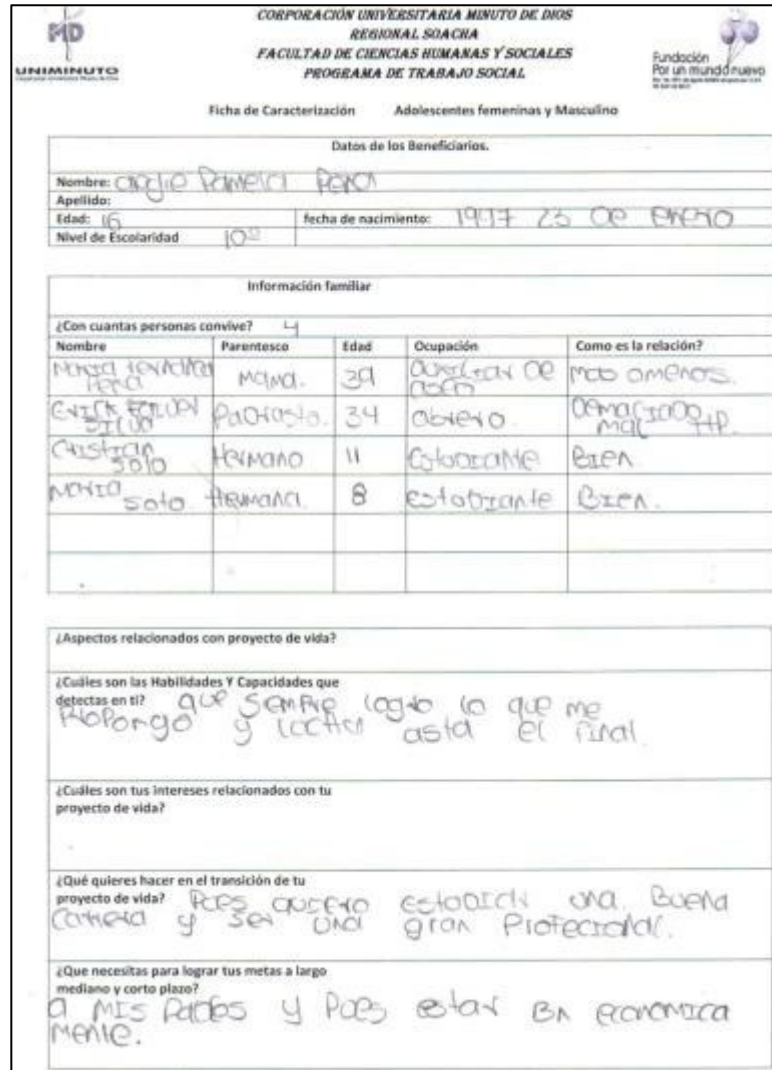 UNIMINUTO
CORPORACIÓN UNIVERSITARIA MINUTO DE DIOS
REGIONAL SOACHA
FACULTAD DE CIENCIAS HUMANAS Y SOCIALES
PROGRAMA DE TRABAJO SOCIAL
Fundación
Por un mundo nuevo
Ficha de Caracterización Adolescentes femeninas y Masculino
Datos de los Beneficiarios.
Nombre: Pamela Pena
Apellido:
Edad: 16 fecha de nacimiento: 1997 23 De Enero
Nivel de Escolaridad 10º
Información familiar
¿Con cuantas personas convive? 4
Nombre Parentesco Edad Ocupación Como es la relación?
Maria Pena Mama. 39 Auxiliar De mas omenos.
Erick Silva Padrasto. 34 obrero. Demaciado Mal
Cristian Soto Hermano 11 Estudiante Bien
Maria Soto Hermana. 8 estudiante Bien.
¿Aspectos relacionados con proyecto de vida?
¿Cuáles son las Habilidades Y Capacidades que
detectas en ti? que Sempre logro lo que me
Propongo y luchar asta el final.
¿Cuáles son tus intereses relacionados con tu
proyecto de vida?
¿Qué quieres hacer en el transición de tu
proyecto de vida? Pues quiero estudiar una Buena
Carrera y Ser una gran Profecional.
¿Que necesitas para lograr tus metas a largo
mediano y corto plazo?
a mis Padres y Pues estar Bn economica
mente.